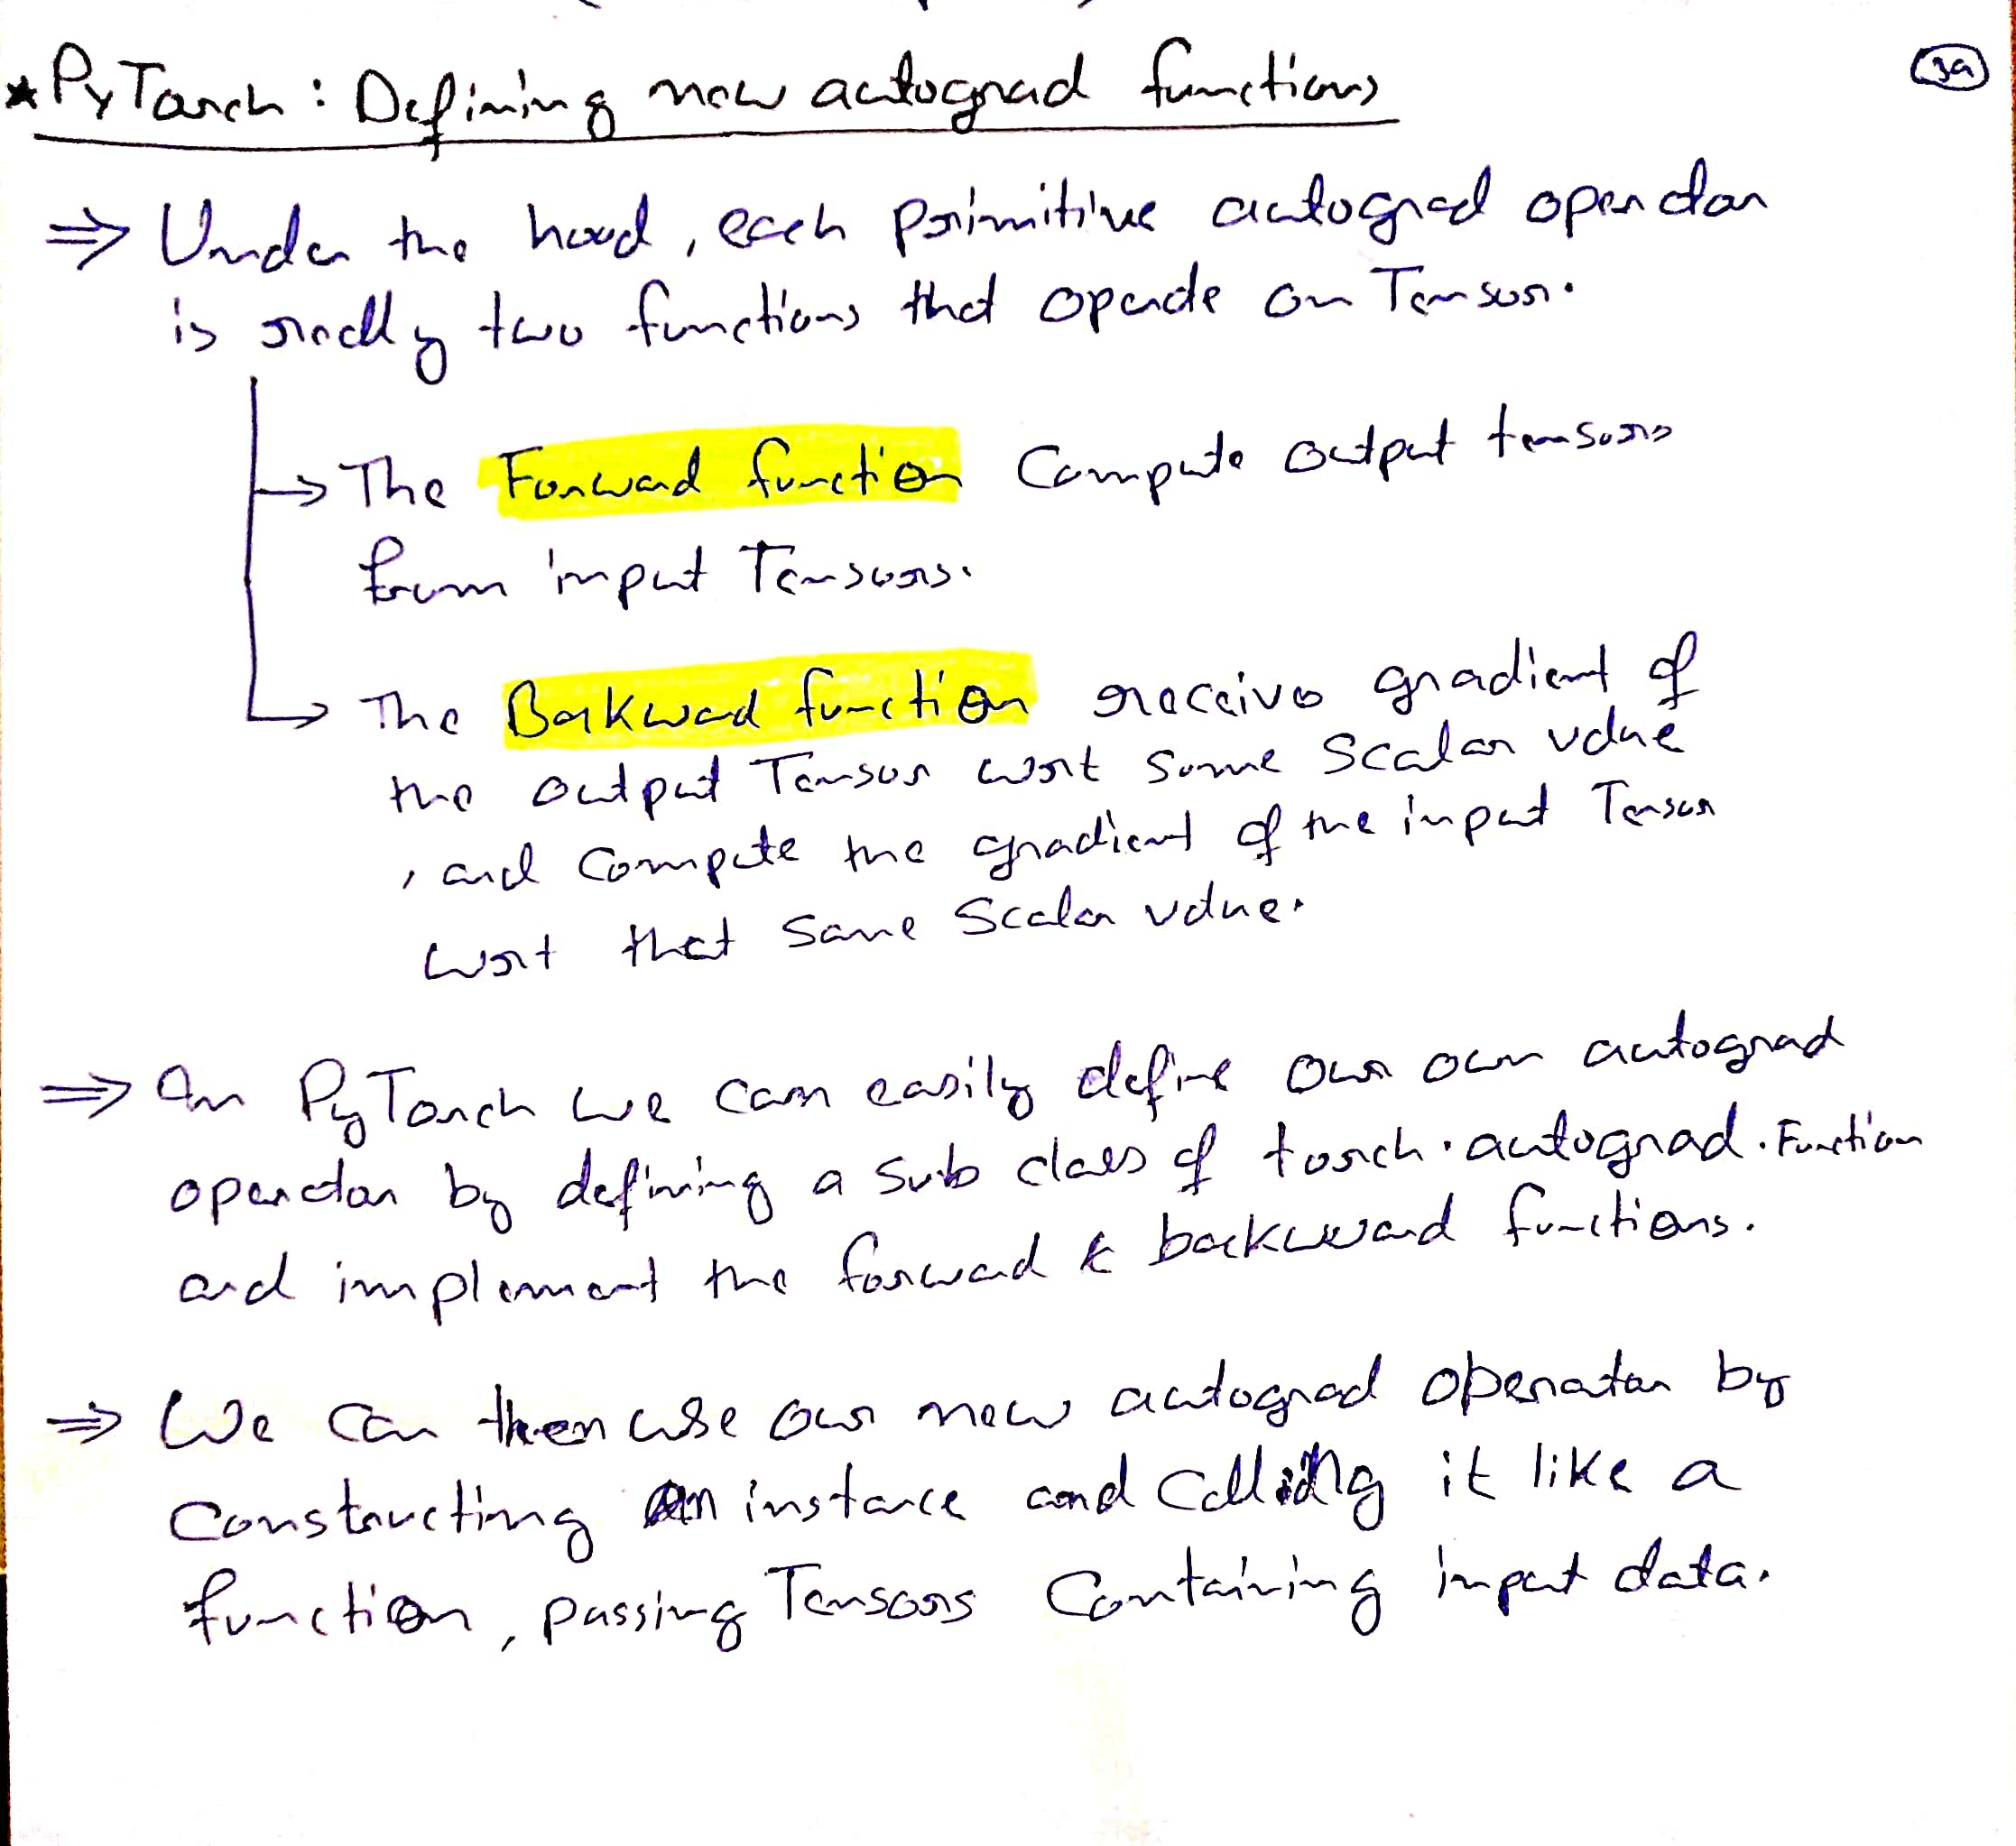 * PyTorch : Defining new autograd functions
39
⇒ Under the hood, each primitive autograd operator
is really two functions that operate on Tensor.
→ The Forward function Compute output tensors
from input Tensors.
→ The Backward function receive gradient of
the output Tensor wrt some Scalar value
, and compute the gradient of the input Tensor
wrt that same Scalar value.
⇒ In PyTorch we can easily define our own autograd
operator by defining a sub class of torch.autograd.Function
and implement the forward & backward functions.
⇒ We can then use our new autograd operator by
constructing an instance and calling it like a
function, passing Tensors containing input data.